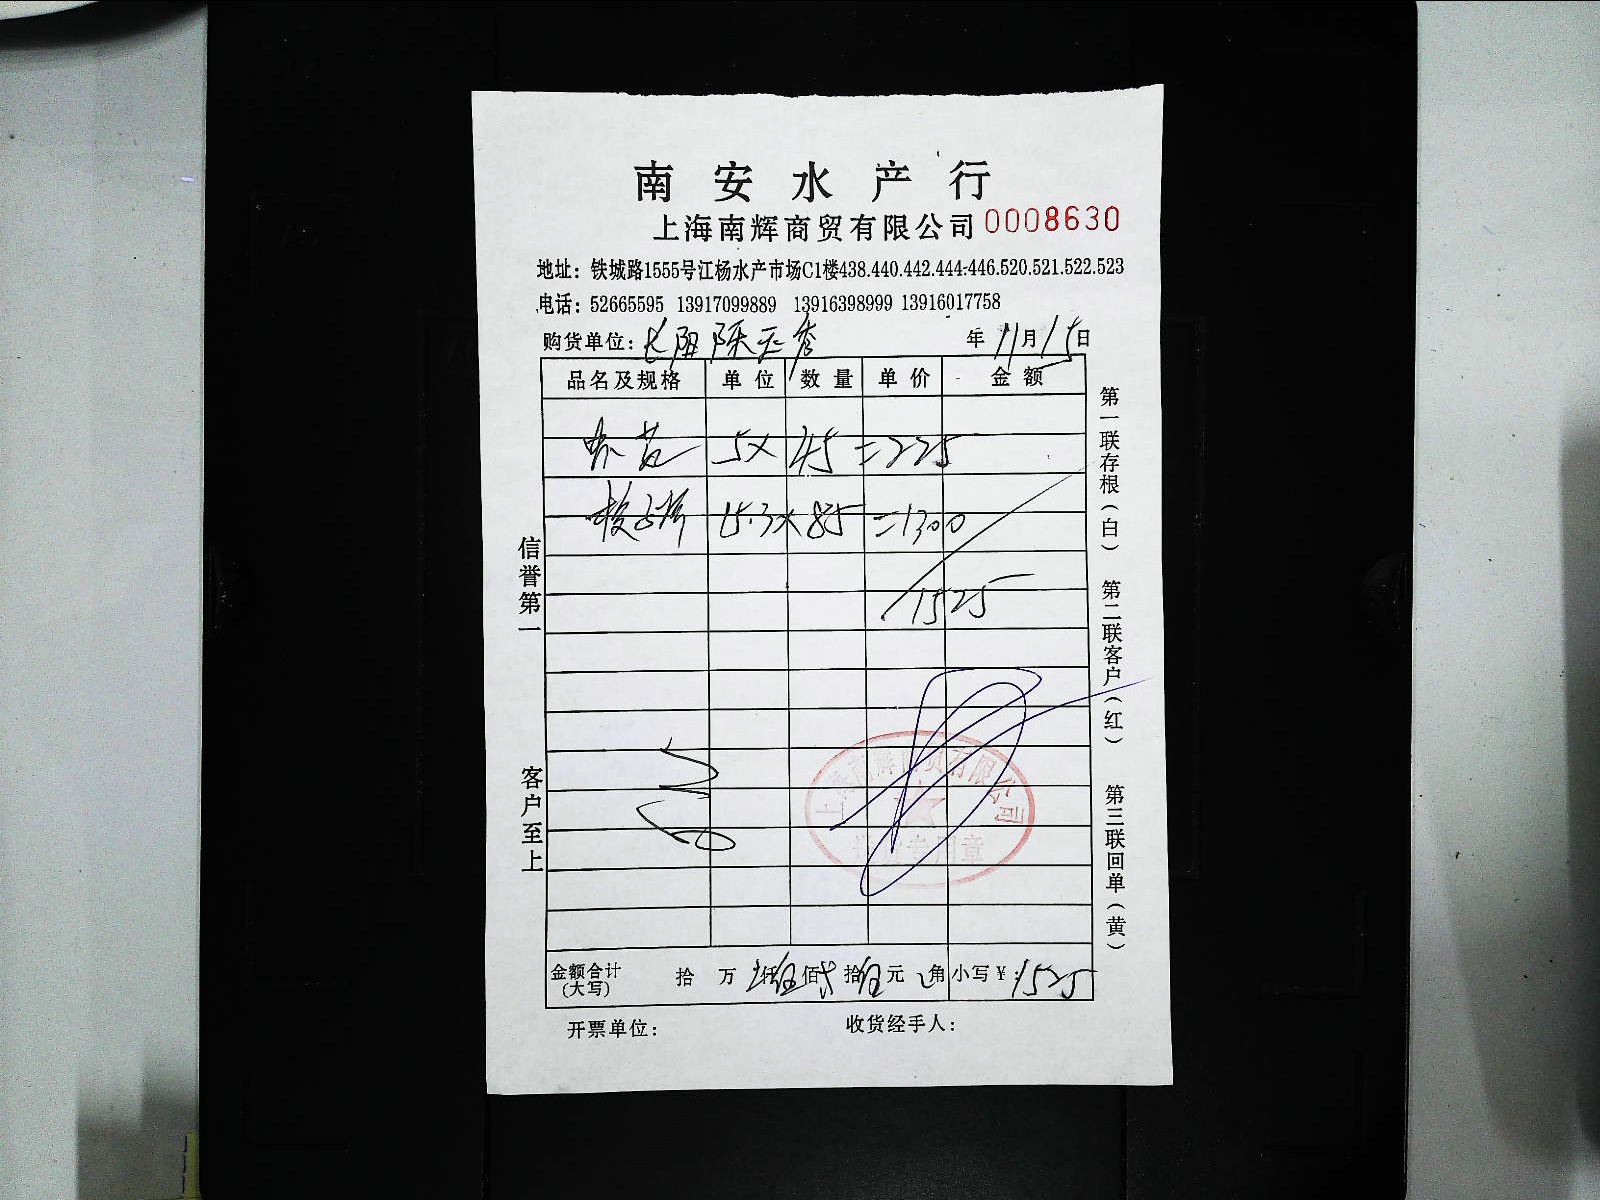 南安水产行
上海南辉商贸有限公司 0008630
地址：铁城路1555号江杨水产市场C1楼438.440.442.444-446.520.521.522.523
电话：52665595 13917099889 13916398999 13916017758
购货单位：长阳陈 秀 年 11 月 15 日
品名及规格 单位 数量 单价 金额
5× 45 =225
15.3× 85 =1300
1525
信誉第一
客户至上
第一联存根（白） 第二联客户（红） 第三联回单（黄）
上海南辉商贸有限公司
专用章
金额合计（大写） 拾 万 仟 伍 佰 拾 伍 元 角 小写￥：1525
开票单位： 收货经手人：